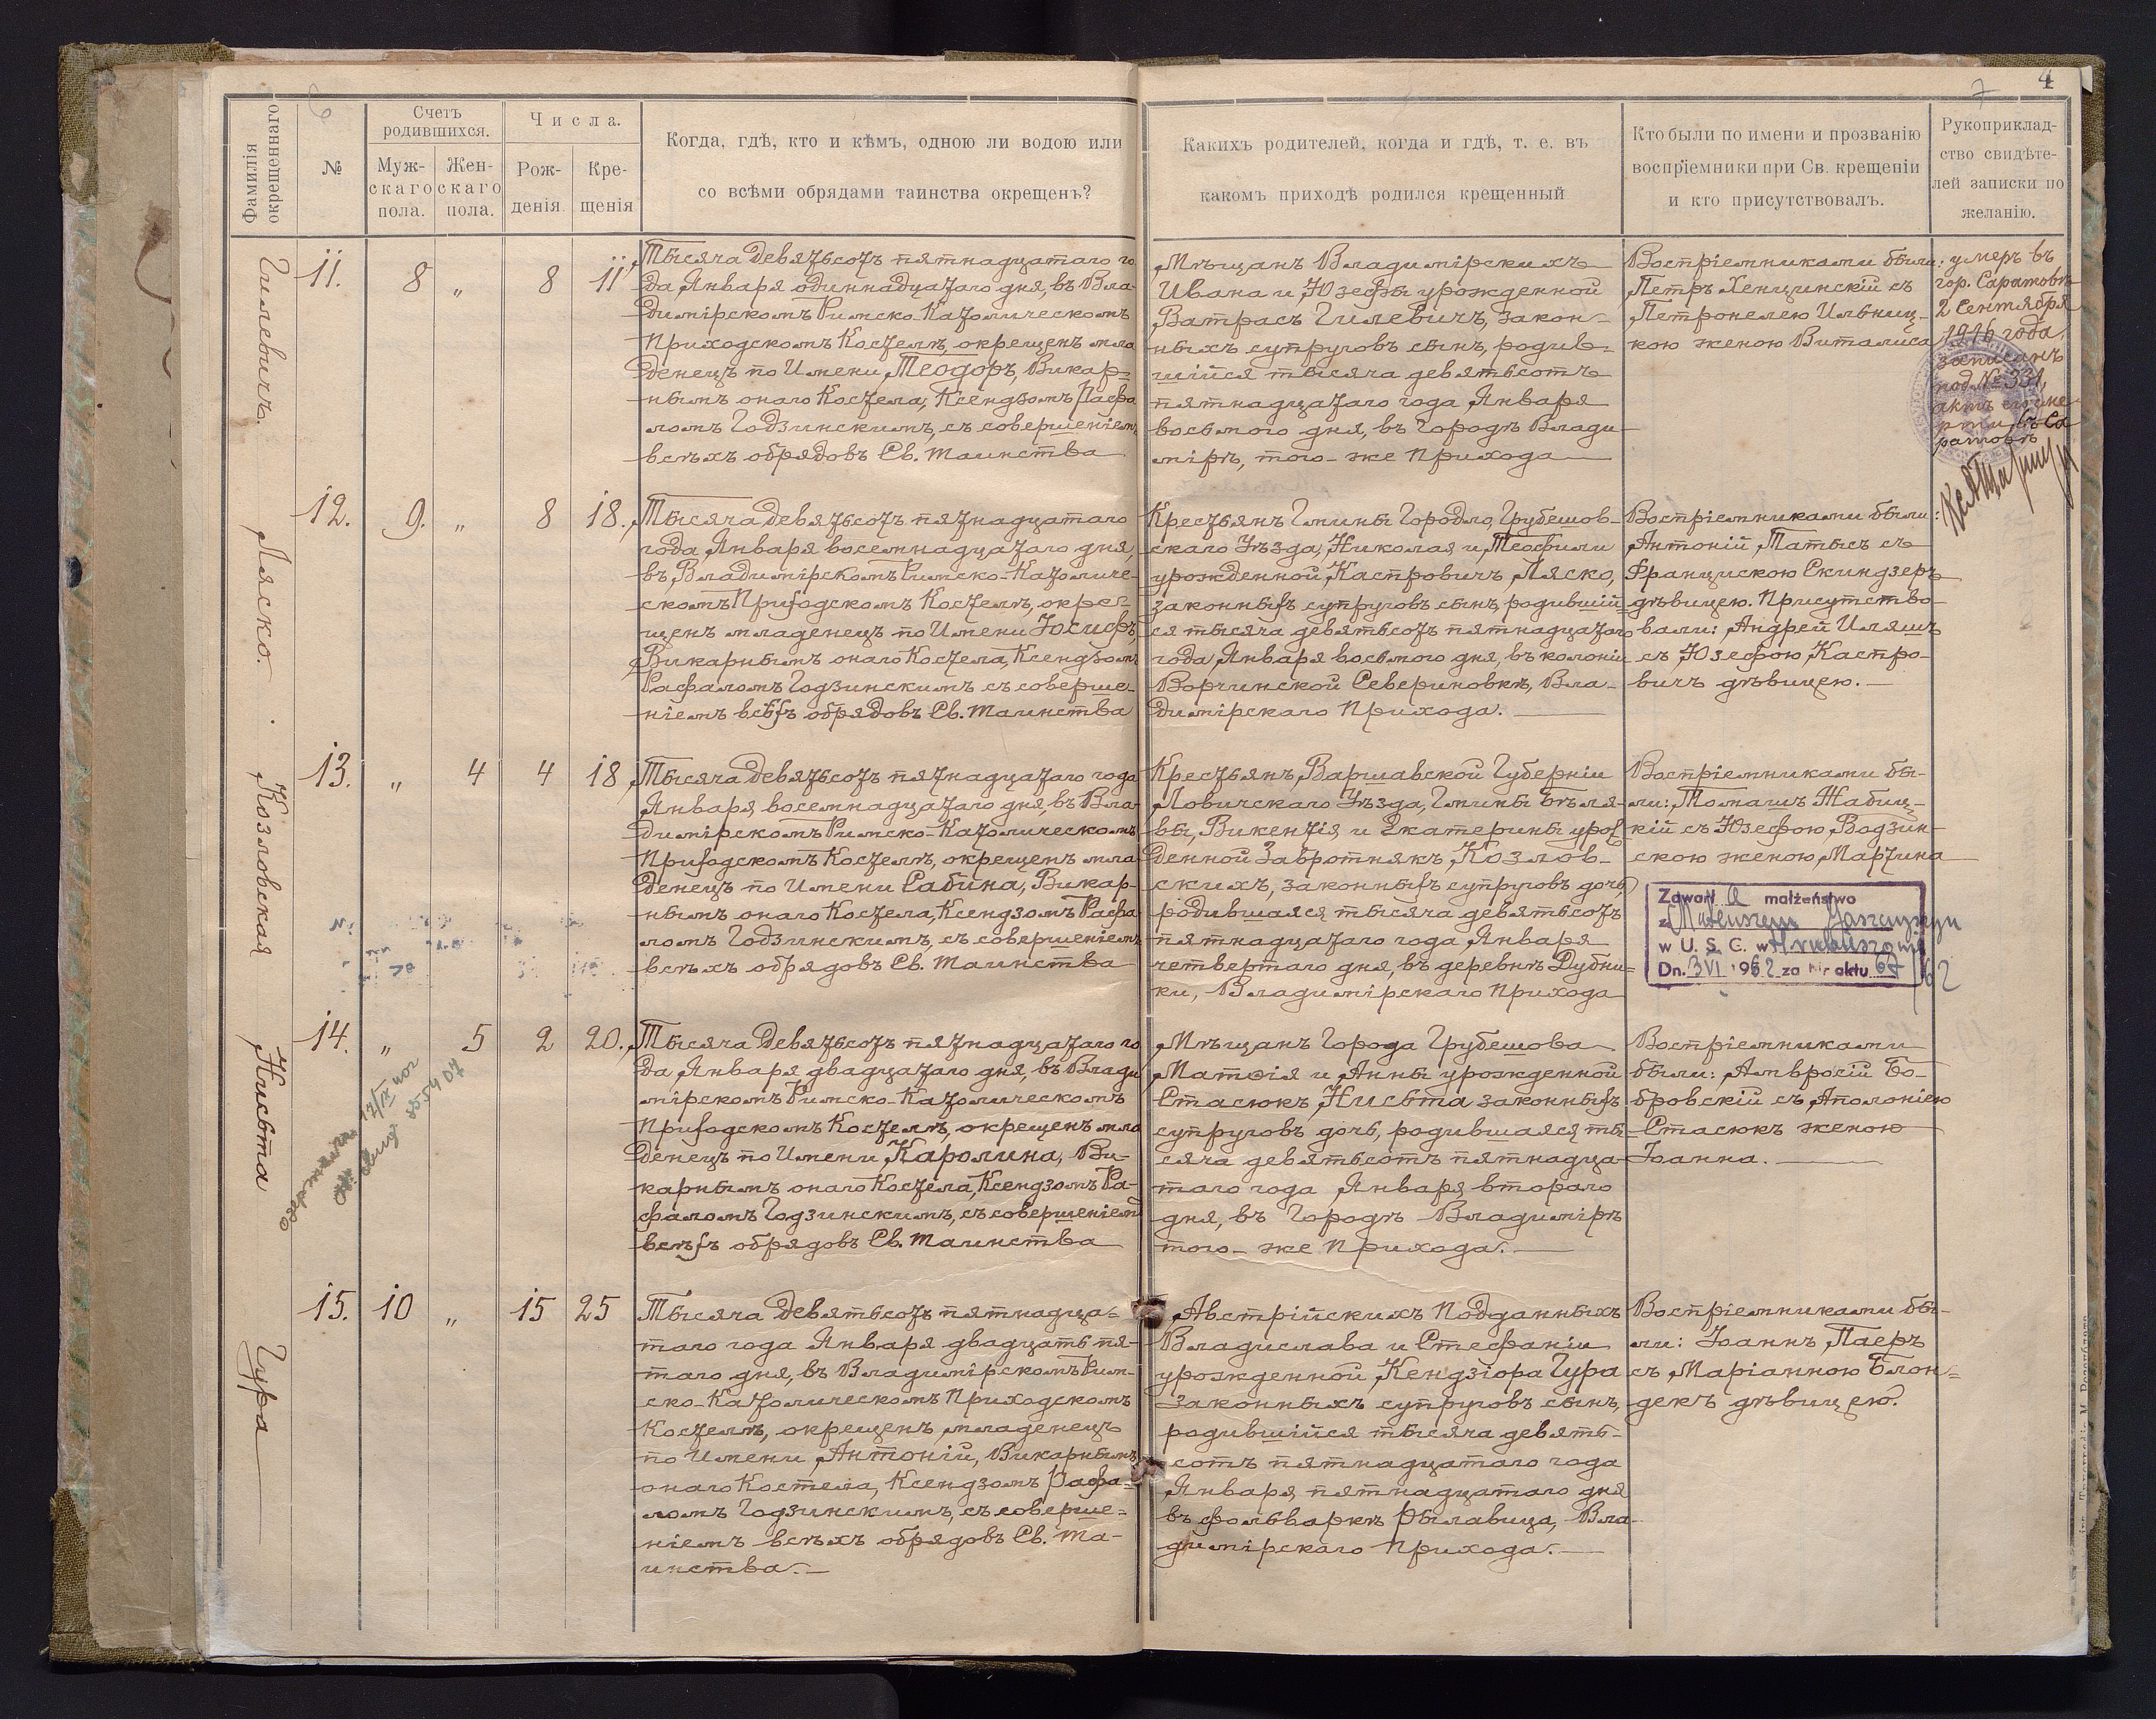 4
7
6
Фамилія окрещеннаго
№
Счетъ родившихся.
Муж-скаго пола.
Жен-скаго пола.
Числа.
Рож-денія.
Кре-щенія
Когда, гдѣ, кто и кѣмъ, одною ли водою или
со всѣми обрядами таинства окрещенъ?
Какихъ родителей, когда и гдѣ, т. е. въ
какомъ приходѣ родился крещенный
Кто были по имени и прозванію
воспріемники при Св. крещеніи
и кто присутствовалъ.
Рукоприклад-
ство свидѣте-
лей записки по
желанію.
Гилевичъ.
11. 8 „ 8 11
Тысяча девятьсотъ пятнадцатаго го
да, Января одиннадцатаго дня, въ Вла-
димірскомъ Римско-Католическомъ
Приходскомъ Костелѣ, окрещенъ мла
денецъ по Имени Теодоръ, Викар-
нымъ онаго Костела, Ксендзомъ Рафа
ломъ Годзинскимъ, съ совершеніемъ
всѣхъ обрядовъ Св. Таинства
Мѣщанъ Владимірскихъ
Ивана и Юзефы урожденной
Ватрасъ Гилевичъ, закон-
ныхъ супруговъ сынъ, родив-
шійся тысяча девятьсотъ
пятнадцатаго года Января
восьмого дня, въ Городѣ Влади
мірѣ, того-же Прихода
Воспріемниками были:
Петръ Хенцинскій съ
Петронелею Ильниц-
кою женою Виталиса
умеръ въ
гор. Саратовѣ
2 Сентября
1916 года,
записанъ
под № 331,
актъ о
въ Са
ратовѣ
Ляско.
12. 9. „ 8 18.
Тысяча девятьсотъ пятнадцатаго
года, Января восемнадцатаго дня,
въ Владимірскомъ Римско-Католиче-
скомъ Приходскомъ Костелѣ, окре-
щенъ младенецъ по Имени Іосифъ,
Викарнымъ онаго Костела, Ксендзомъ
Рафаломъ Годзинскимъ съ соверше-
ніемъ всѣхъ обрядовъ Св. Таинства
Крестьянъ Гмины Городло, Грубешов-
скаго Уѣзда, Николая и Теофили
урожденной Кастровичъ, Ляско,
законныхъ супруговъ сынъ, родившій-
ся тысяча девятьсотъ пятнадцатаго
года, Января восьмого дня, въ колоніи
Ворчинской Севериновкѣ, Вла-
димірскаго Прихода.
Воспріемниками были:
Антоній Татысъ съ
Францискою Скиндзеръ
дѣвицею. Присутство-
вали: Андрей Иляшъ
съ Юзефою Кастро-
вичъ дѣвицею.
Козловская
13. „ 4 4 18
Тысяча девятьсотъ пятнадцатаго года
Января, восемнадцатаго дня, въ Вла-
димірскомъ Римско-Католическомъ
Приходскомъ Костелѣ, окрещенъ мла
денецъ по Имени Сабина, Викар-
нымъ онаго Костела, Ксендзомъ Рафа
ломъ Годзинскимъ, съ совершеніемъ
всѣхъ обрядовъ Св. Таинства
Крестьянъ, Варшавской Губерніи
Ловичскаго Уѣзда, Гмины Бѣля-
вы, Викентія и Екатерины урож
денной Завротнякъ, Козлов-
скихъ, законныхъ супруговъ дочь,
родившаяся тысяча девятьсотъ
пятнадцатаго года Января
четвертаго дня, въ деревнѣ Дубни-
ки, Владимірскаго Прихода
Воспріемниками бы-
ли: Томашъ Жабиц-
кій съ Юзефою Водзин-
скою женою Мартина
Zawarł a małżeństwo
z Mateuszem
w U. S. C. w Hrubieszowie
Dn. 3 VI 1962 za Nr aktu 67/62
Нисьта
14. „ 5 2 20.
Тысяча девятьсотъ пятнадцатаго го
да, Января двадцатаго дня, въ Влади
мірскомъ Римско-Католическомъ
Приходскомъ Костелѣ, окрещенъ мла
денецъ по Имени Каролина, Ви-
карнымъ онаго Костела, Ксендзомъ Ра-
фаломъ Годзинскимъ, съ совершеніемъ
всѣхъ обрядовъ Св. Таинства
Мѣщанъ Города Грубешова
Матѳія и Анны урожденной
Стасюкъ, Нисьта законныхъ
супруговъ дочь, родившаяся ты-
сяча девятьсотъ пятнадца-
таго года Января второго
дня, въ Городѣ Владимірѣ
того-же Прихода.
Воспріемниками
были: Амвросій Бо-
бровскій съ Аполоніею
Стасюкъ женою
Іоанна.
Гура
15. 10 „ 15 25
Тысяча девятьсотъ пятнадца-
таго года Января двадцать пя-
таго дня, въ Владимірскомъ Рим-
ско-Католическомъ Приходскомъ
Костелѣ, окрещенъ младенецъ
по Имени Антоній, Викарнымъ
онаго Костела, Ксендзомъ Рафа-
ломъ Годзинскимъ, съ соверше-
ніемъ всѣхъ обрядовъ Св. Та-
инства.
Австрійскихъ Подданныхъ
Владислава и Стефаніи
урожденной Кендзіора Гура
законныхъ супруговъ сынъ,
родившійся тысяча девять-
сотъ пятнадцатаго года
Января пятнадцатаго дня
въ фольваркѣ Рылавица, Вла-
димірскаго Прихода.
Воспріемниками бы-
ли: Іоаннъ Паеръ
съ Маріанною Блон-
декъ дѣвицею.